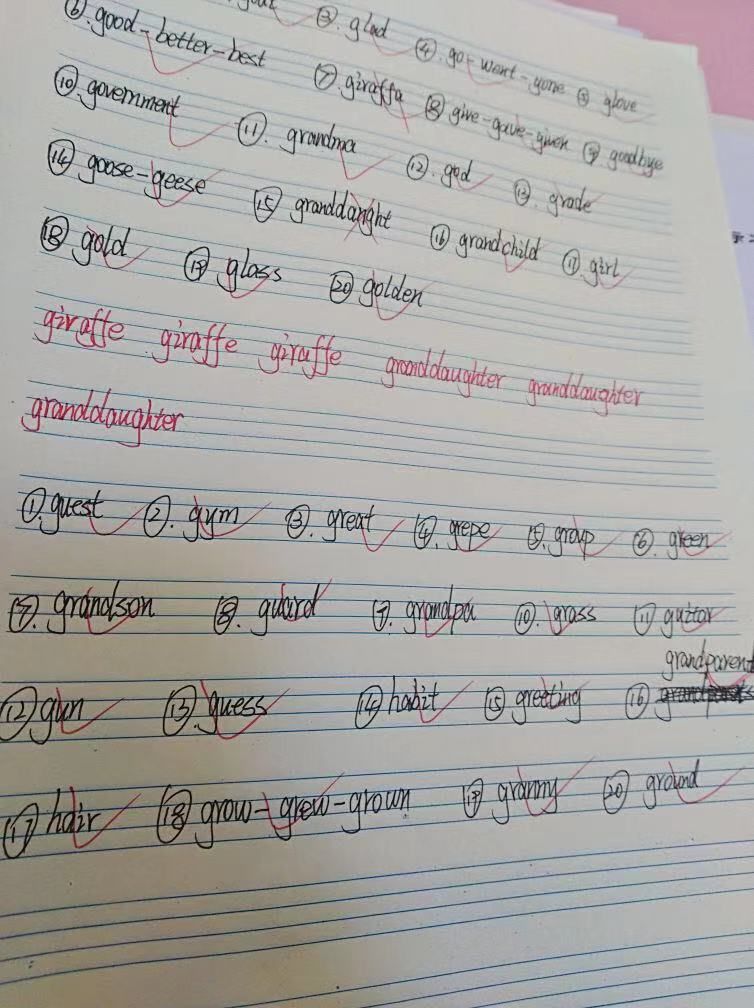 ③. glad ④. go-went-gone ⑤ glove
⑥. good-better-best ⑦. giraffa ⑧ give-gave-given ⑨ goodbye
⑩ government ⑪. grandma ⑫. god ⑬. grade
⑭ goose-geese ⑮ granddanght ⑯ grandchild ⑰. girl
⑱ gold ⑲ glass ⑳ golden
giraffe giraffe giraffe granddaughter granddaughter
granddaughter
①. guest ②. gym ③. great ④. grepe ⑤. group ⑥. green
⑦. grandson ⑧. guard ⑨. grandpa ⑩. grass ⑪ guitar
grandparent
⑫ gun ⑬. guess ⑭ habit ⑮ greeting ⑯
⑰ hair ⑱ grow-grew-grown ⑲ granny ⑳ ground